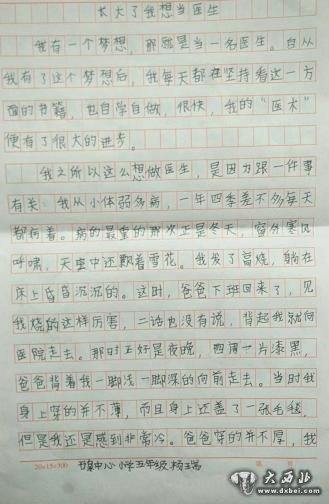 长大了我想当医生
我有一个梦想，那就是当一名医生。自从
我有了这个梦想后，我每天都在坚持看这一方
面的书籍，也自学自做，很快，我的“医术”
便有了很大的进步。
我之所以这么想做医生，是因为跟一件事
有关：我从小体弱多病，一年四季差不多每天
都病着。病的最重的那次正是冬天，窗外寒风
呼啸，天空中还飘着雪花。我发了高烧，躺在
床上昏昏沉沉的。这时，爸爸下班回来了，见
我烧的这样厉害，二话也没有说，背起我就向
医院走去。那时正好是夜晚，四周一片漆黑，
爸爸背着我一脚浅一脚深的向前走去。当时我
身上穿的并不薄，而且身上还盖了一张毛毯，
但是我还是感到非常冷。爸爸穿的并不厚，我
20×15=300
中心小学五年级 杨
大西北